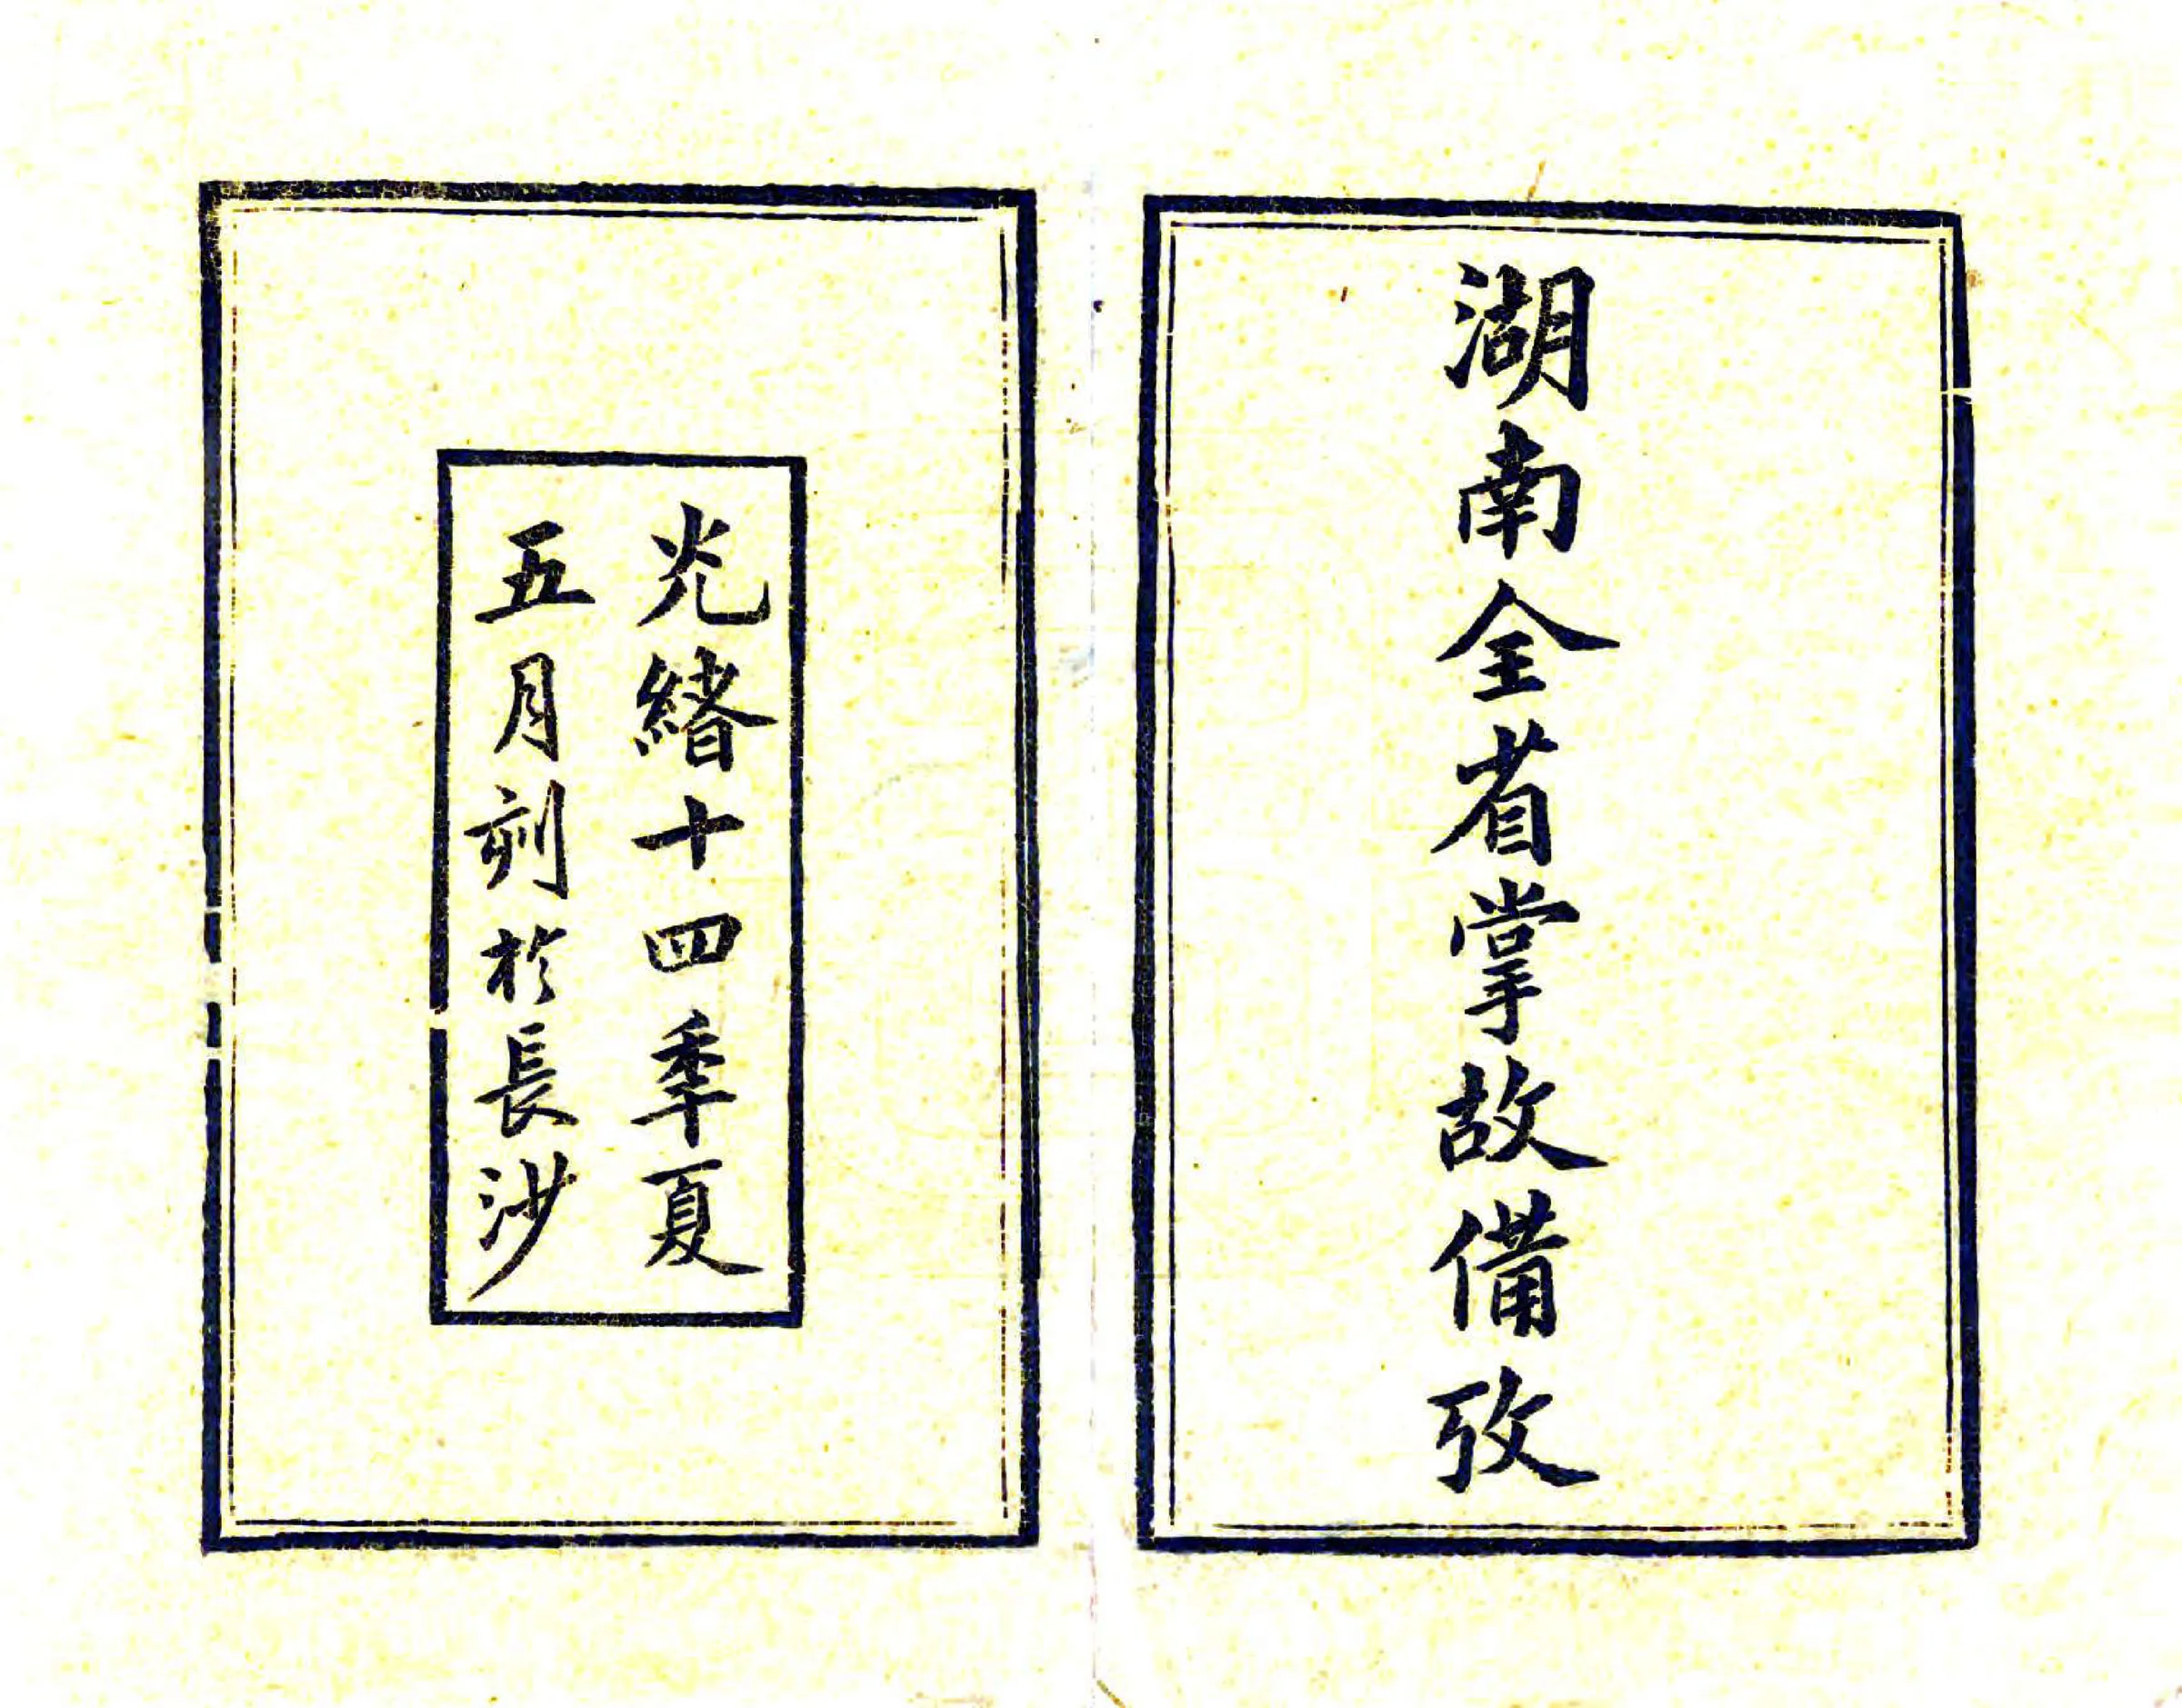 湖南全省掌故備攷
光緒十四季夏
五月刻於長沙